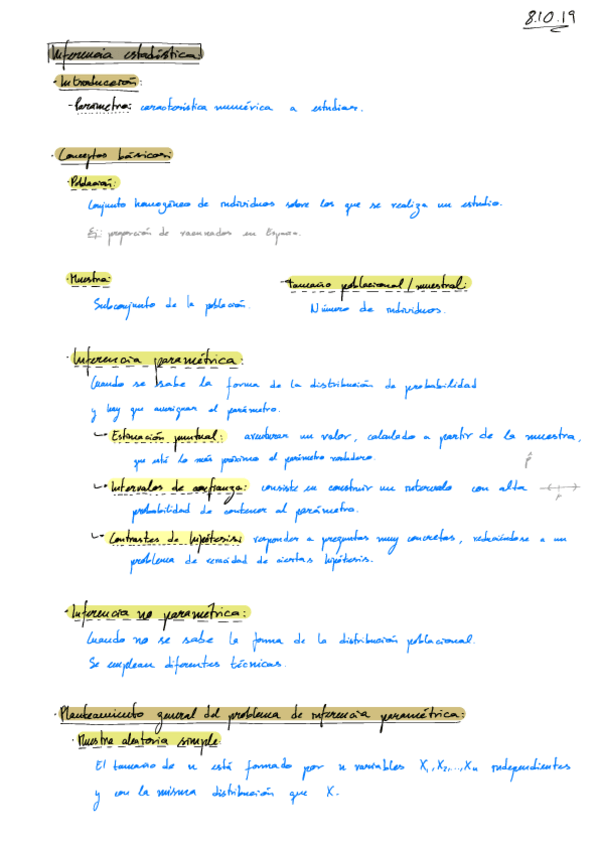 8.10.19
Inferencia estadística:
· Introducción:
· Parámetro: característica numérica a estudiar.
· Conceptos básicos:
· Población:
Conjunto homogéneo de individuos sobre los que se realiza un estudio.
Ej: proporción de vacunados en España.
· Muestra:
Subconjunto de la población.
· tamaño poblacional / muestral:
Número de individuos.
· Inferencia paramétrica:
Cuando se sabe la forma de la distribución de probabilidad
y hay que averiguar el parámetro.
Estimación puntual: aventurar un valor, calculado a partir de la muestra,
que esté lo más próximo al parámetro verdadero. p̂
Intervalos de confianza: consiste en construir un intervalo con alta
probabilidad de contener al parámetro. p
Contrastes de hipótesis: responder a preguntas muy concretas, reduciéndose a un
problema de veracidad de ciertas hipótesis.
· Inferencia no paramétrica:
Cuando no se sabe la forma de la distribución poblacional.
Se emplean diferentes técnicas.
· Planteamiento general del problema de inferencia paramétrica:
· Muestra aleatoria simple:
El tamaño de n está formado por n variables X₁, X₂, ..., Xₙ independientes
y con la misma distribución que X.